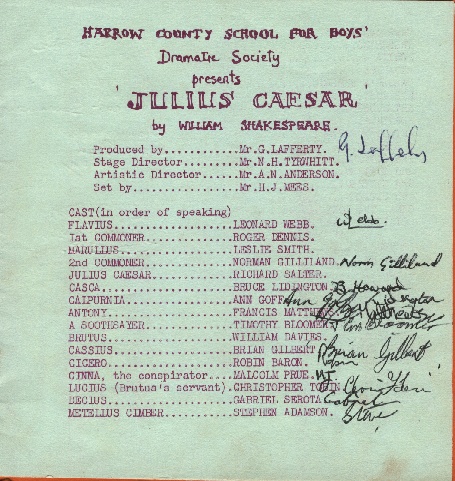 HARROW COUNTY SCHOOL FOR BOYS'
Dramatic Society
presents
'JULIUS CAESAR'
by WILLIAM SHAKESPEARE.
Produced by............Mr.G.LAFFERTY. G. Lafferty
Stage Director.........Mr.N.H.TYRWHITT.
Artistic Director......Mr.A.N.ANDERSON.
Set by.................Mr.H.J.MEES.
CAST(in order of speaking)
FLAVIUS...................LEONARD WEBB.
1st COMMONER..............ROGER DENNIS.
MARULLUS..................LESLIE SMITH.
2nd COMMONER..............NORMAN GILLILAND. Norm Gilliland
JULIUS CAESAR.............RICHARD SALTER.
CASCA.....................BRUCE LIDINGTON. B. Howard
CALPURNIA.................ANN GOFF Ann
ANTONY....................FRANCIS MATTHEWS
A SOOTHSAYER..............TIMOTHY BLOOMER Tim Bloomer
BRUTUS....................WILLIAM DAVIES.
CASSIUS...................BRIAN GILBERT Brian Gilbert
CICERO....................ROBIN BARON.
CINNA, the conspirator....MALCOLM PRUE.
LUCIUS (Brutus's servant).CHRISTOPHER TOBIN. Chris
DECIUS....................GABRIEL SEROTA Gabriel
METELLUS CIMBER...........STEPHEN ADAMSON. Steve